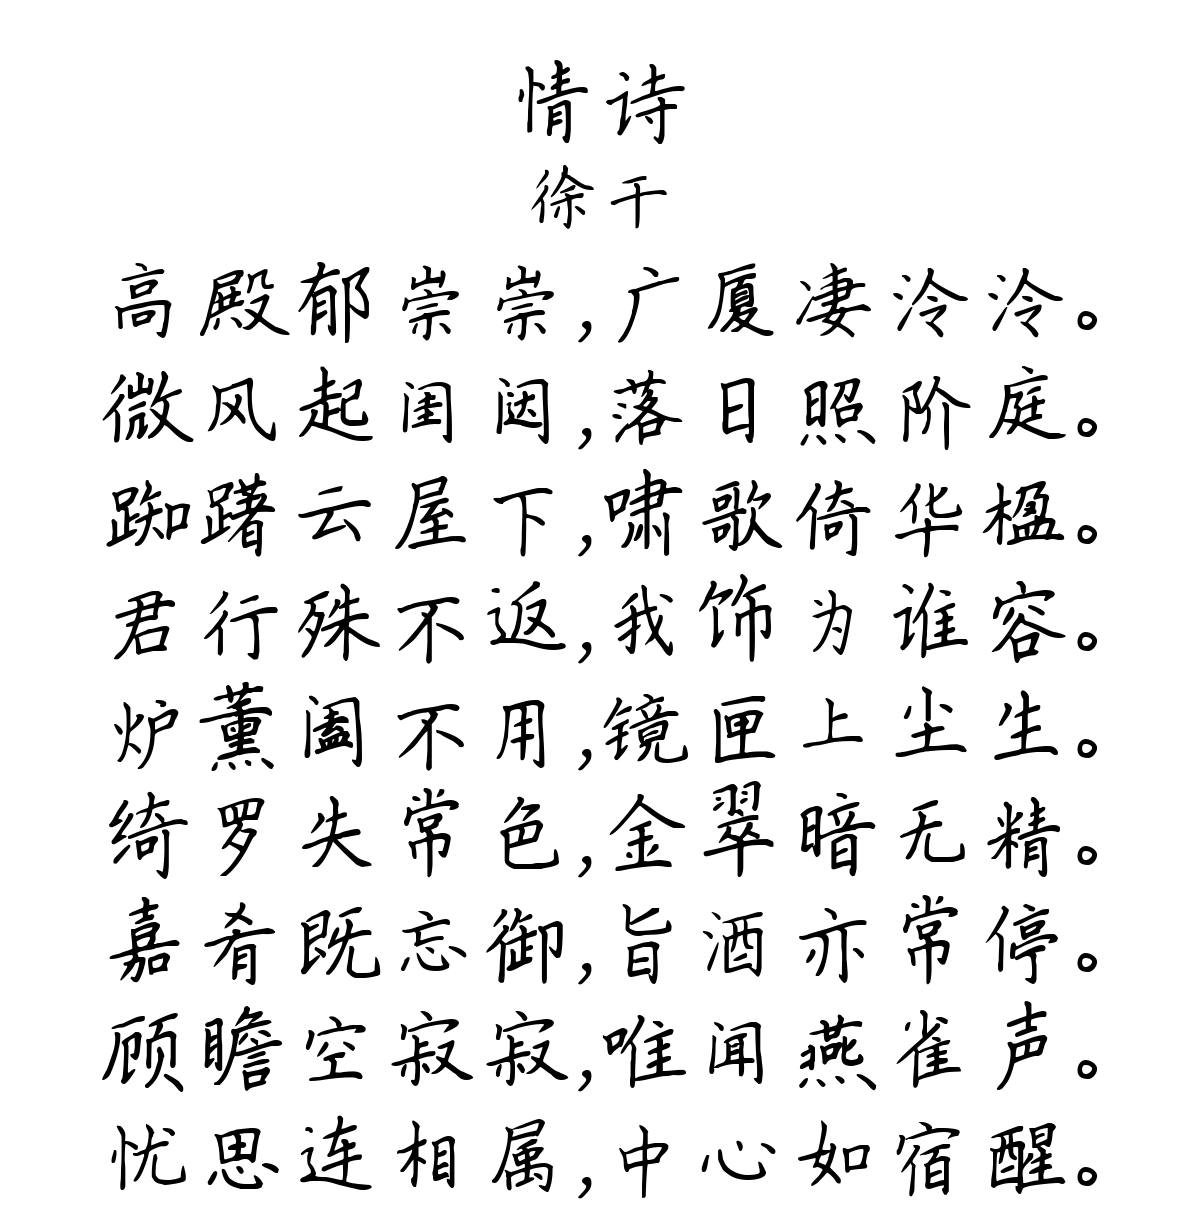 情诗
徐干
高殿郁崇崇,广厦凄泠泠。
微风起闺闼,落日照阶庭。
踟躇云屋下,啸歌倚华楹。
君行殊不返,我饰为谁容。
炉薰阖不用,镜匣上尘生。
绮罗失常色,金翠暗无精。
嘉肴既忘御,旨酒亦常停。
顾瞻空寂寂,唯闻燕雀声。
忧思连相属,中心如宿醒。